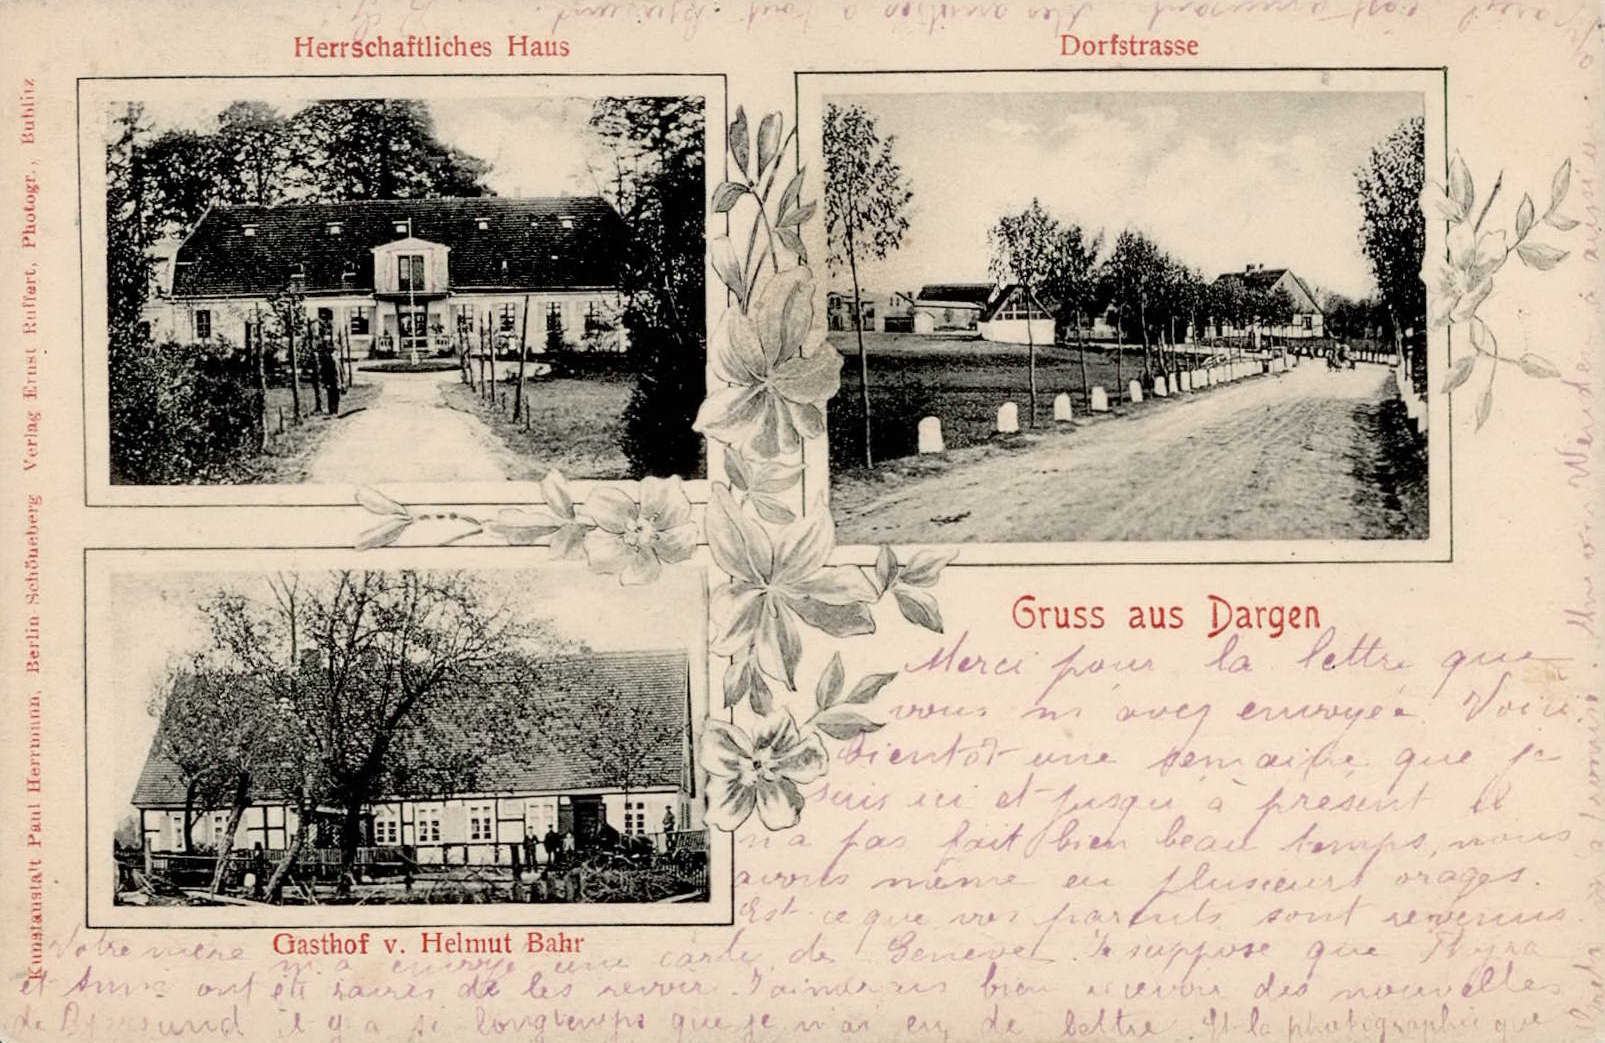 Herrschaftliches Haus
Dorfstrasse
Kunstanstalt Paul Herrmann, Berlin-Schöneberg Verlag Ernst Ruffert, Photogr., Bublitz
Gruss aus Dargen
Gasthof v. Helmut Bahr
Merci pour la lettre que
vous m'avez envoyée. Voici
bientôt une semaine que je
suis ici et jusqu'à présent il
n'a pas fait bien beau temps, nous
avons même eu plusieurs orages.
Est-ce que vos parents sont revenus
Votre mère m'a envoyé une carte de Genève. Je suppose que Thyra
et ont été de les revoir. J'aimerais bien recevoir des nouvelles
de il y a si longtemps que je n'ai eu de lettre. Et la photographie que